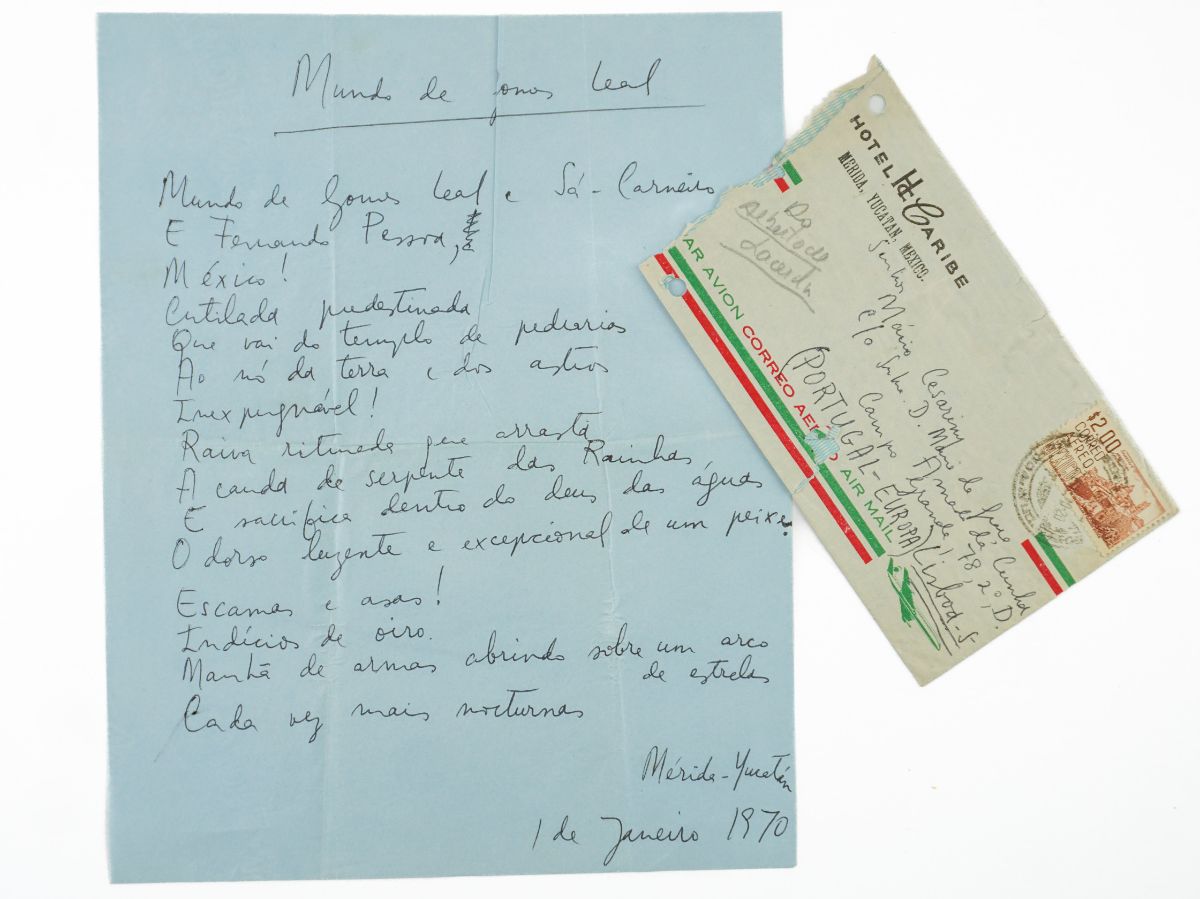 Mundo de Gomes Leal
Mundo de Gomes Leal e Sá-Carneiro
E Fernando Pessoa,
México!
Cutilada predestinada
Que vai do templo de pedrarias
Ao nó da terra e dos astros
Inexpugnável!
Raiva ritmada que arrasta
A cauda de serpente das Rainhas
E sacrifica dentro do deus das águas
O dorso luzente e excepcional de um peixe.
Escamas e asas!
Indícios de oiro.
Manhã de armas abrindo sobre um arco
de estrelas
Cada vez mais nocturnas
Mérida-Yucatán
1 de Janeiro 1970
HOTEL HC CARIBE
MERIDA, YUCATAN, MEXICO.
Do
Alberto de
Lacerda
Senhor Mário Cesariny de
c/o D. Amad da Cunha
Campo Grande, 78, 2º, D.
(PORTUGAL-EUROPA) Lisboa-5
AR AVION CORREO AEREO AIR MAIL
$2.00
CORREO
AEREO